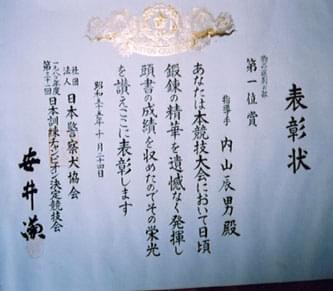 表彰状
物の選別の部
第一位賞
指導手 内山辰男殿
あなたは本競技大会において日頃
鍛錬の精華を遺憾なく発揮し
頭書の成績を収めたのでその栄光
を讃えここに表彰します
昭和五十五年十月二十四日
社団法人 日本警察犬協会
一九八〇年度
第三十一回 日本訓練チャンピオン決定競技会
安井